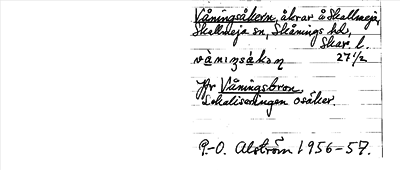 Våningsåkern, åkrar å Skallmeja,
Skallmeja sn, Skånings hd,
Skar. l.
våniŋsåkεɳ 27 1/2
Jfr Våningsbron.
Lokaliseringen osäker.
P.-O. Alström 1956-57.